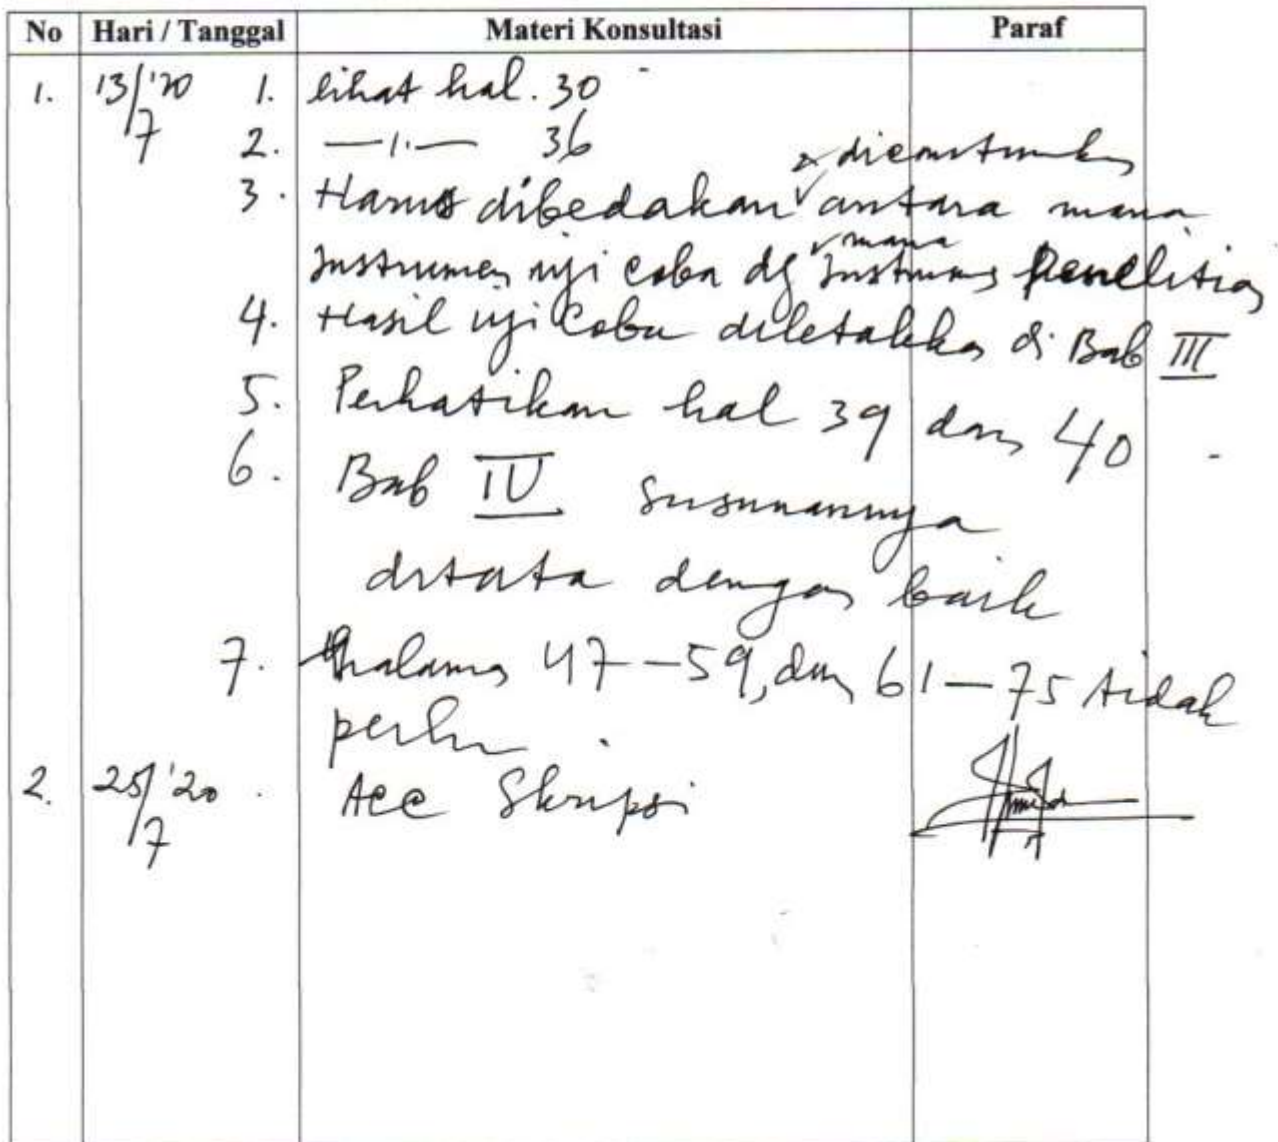 No Hari / Tanggal Materi Konsultasi Paraf
1. 13/7 '20 1. lihat hal. 30
2. —1.— 36
3. Harus dibedakan antara mana
Instrumen uji coba dg mana Instrumen Penelitian
4. Hasil uji Coba diletakkan di Bab III
5. Perhatikan hal 39 dan 40
6. Bab IV susunannya
ditata dengan baik
7. halaman 47 – 59, dan 61 – 75 tidak
perlu.
2. 25/7 '20. Acc Skripsi